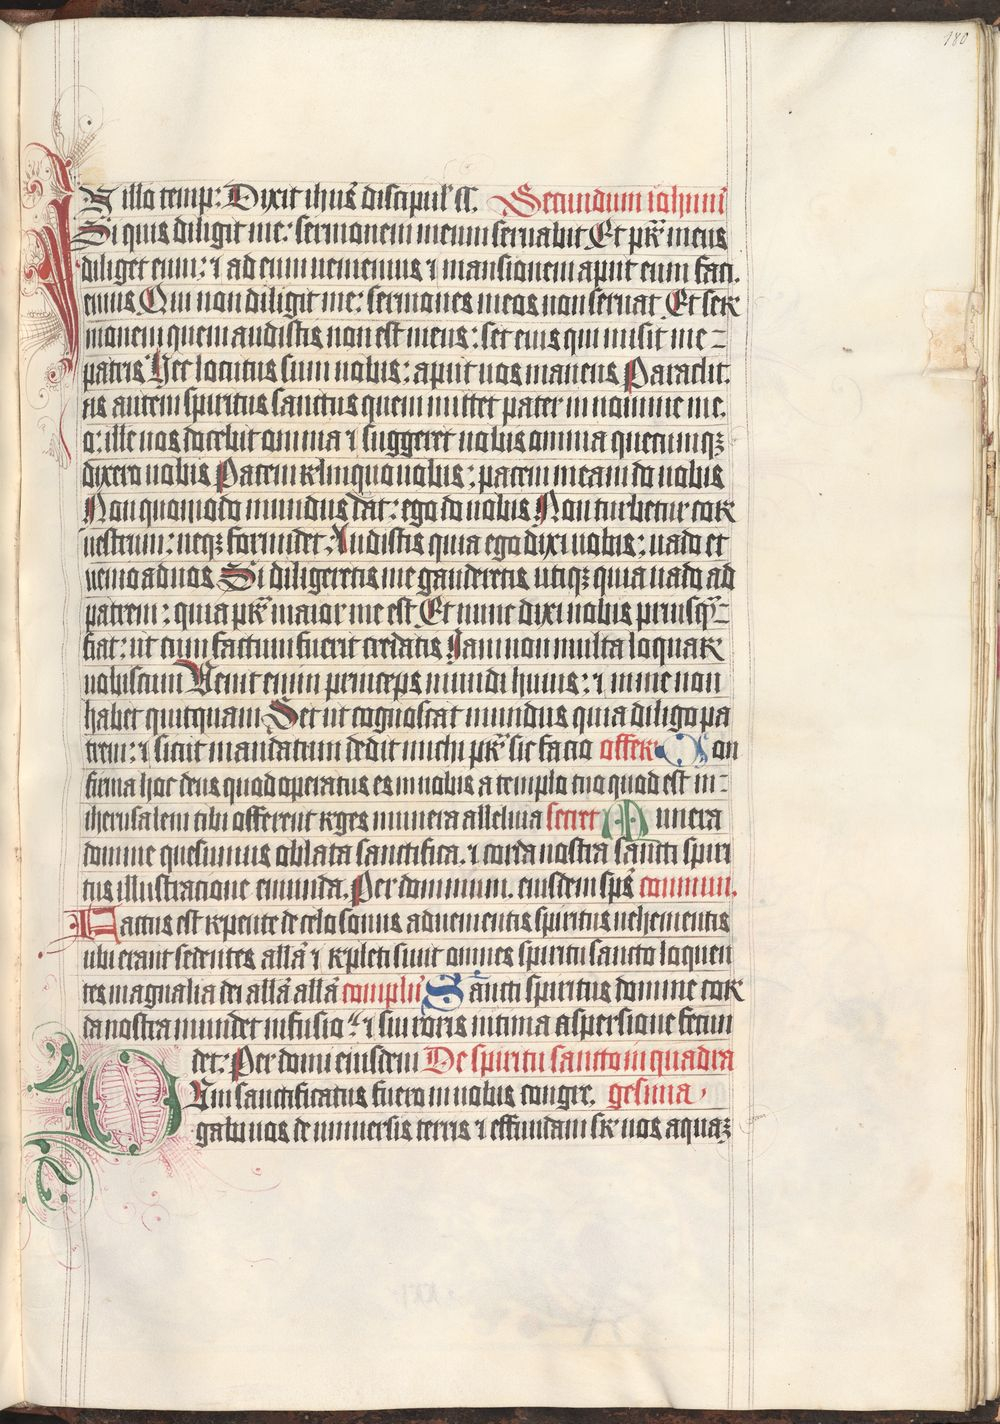 180
In illo temp: Dixit ihūs discipul' ss. Secundum iohānē
Si quis diligit me: sermonem meum seruabit Et pr̄ meus
diliget eum: ⁊ ad eum ueniemus ⁊ mansionem aput eum faci.
emus Qui non diligit me: sermones meos non seruat Et ser
monem quem audistis non est meus: set eius qui misit me
patris Hec locutus sum uobis: aput uos manens Paraclit.
us autem spiritus sanctus quem mittet pater in nomine me.
o: ille uos docebit omnia ⁊ suggeret uobis omnia quecumqꝫ
dixero uobis Pacem relinquo uobis: pacem meam do uobis
Non quomodo mundus dat: ego do uobis Non turbetur cor
uestrum: neqꝫ formidet: Audistis quia ego dixi uobis: uado et
uenio ad uos Si diligeretis me gauderetis utiqꝫ quia uado ad
patrem: quia pr̄ maior me est Et nunc dixi uobis priusqȝ̄
fiat: ut cum factum fuerit credatis Iam non multa loquar
uobiscum Venit enim princeps mundi huius: ⁊ in me non
habet quitquam Set ut cognoscat mundus quia diligo pa
trem: ⁊ sicut mandatum dedit michi pr̄ sic facio offer Con
firma hoc deus quod operatus es in nobis a templo tuo quod est in
iherusalem tibi offerent reges munera alleluia secret Munera
domine quesumus oblata sanctifica. ⁊ corda nostra sancti spiri
tus illustracione emunda. Per dominum. eiusdem sp̄s commun.
Factus est repente de celo sonus aduenientis spiritus uehementis
ubi erant sedentes allā ⁊ repleti sunt omnes spiritu sancto loquen
tes magnalia dei allā allā complēn Sancti spiritus domine cor
da nostra mundet infusio ⁊ sui roris intima aspersione fecun
det: Per domi eiusdem De spiritu sancto in quadra
Cum sanctificatus fuero in uobis congre. gesima
gabo uos de uniuersis terris ⁊ effundam sr̄ uos aquaꝫ